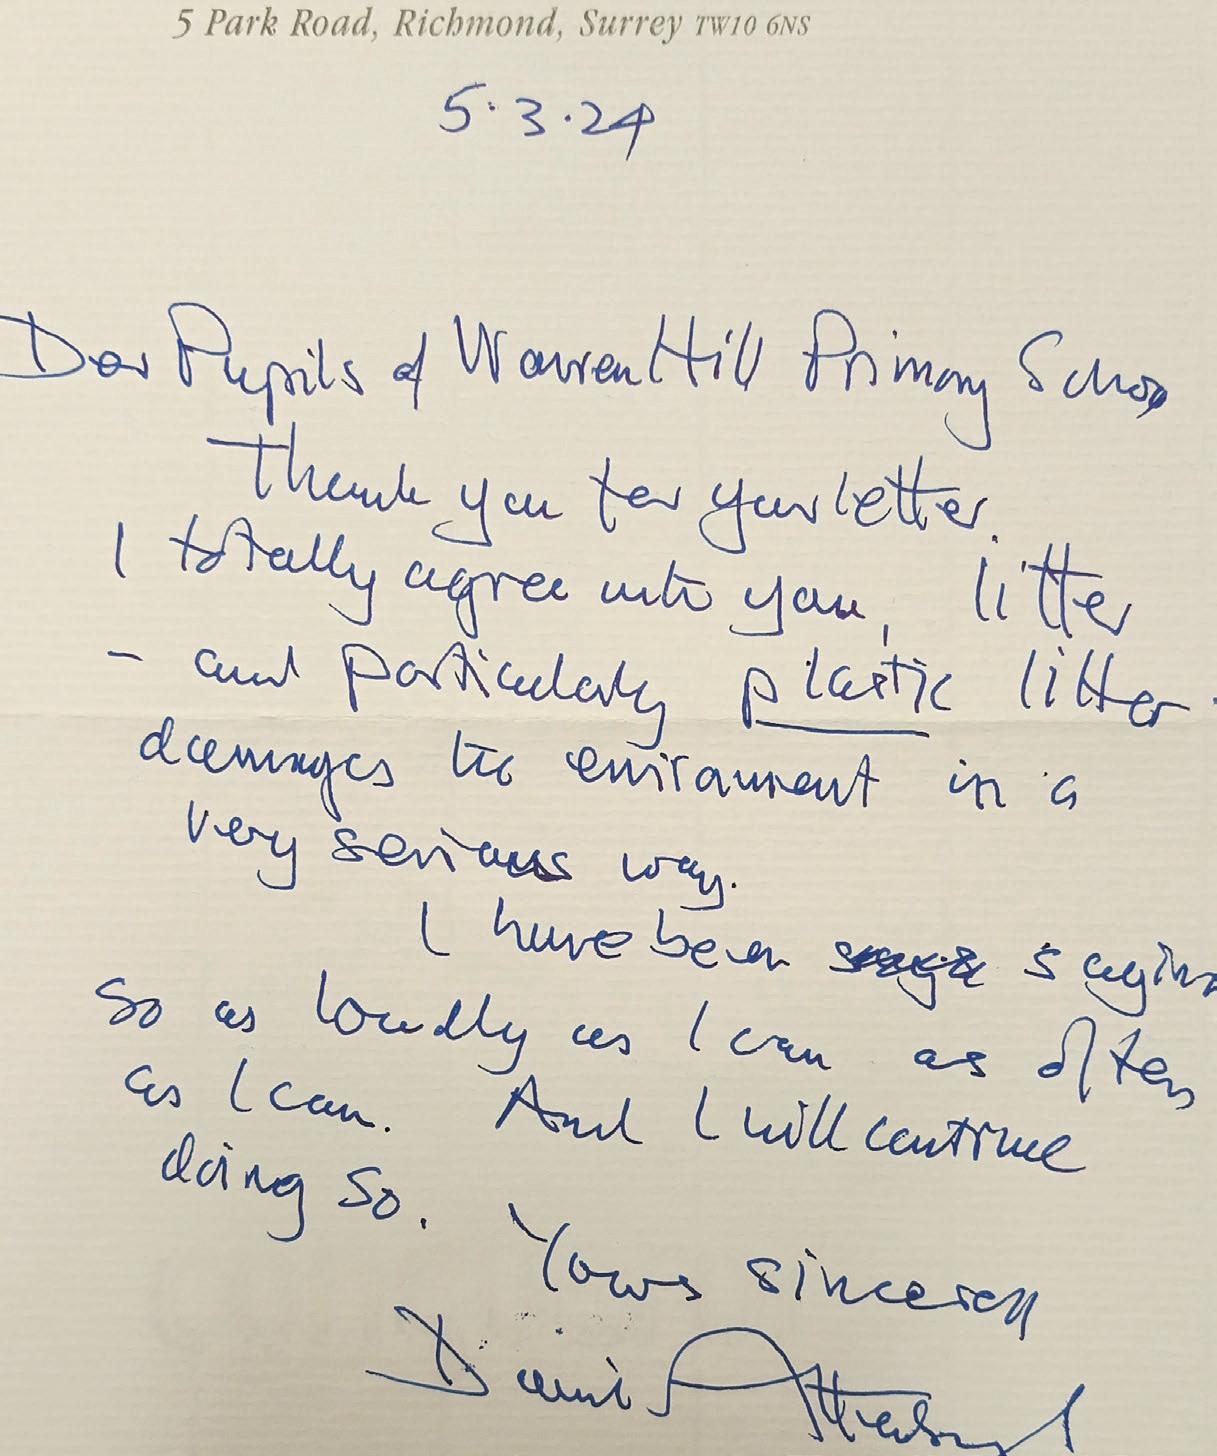 5 Park Road, Richmond, Surrey TW10 6NS
5.3.24
Dear Pupils of Warren Hill Primary School
Thank you for your letter.
I totally agree with you, litter
- and particularly plastic litter -
damages the environment in a
very serious way.
I have been saying
so as loudly as I can as often
as I can. And I will continue
doing so.
Yours sincerely
David Attenborough